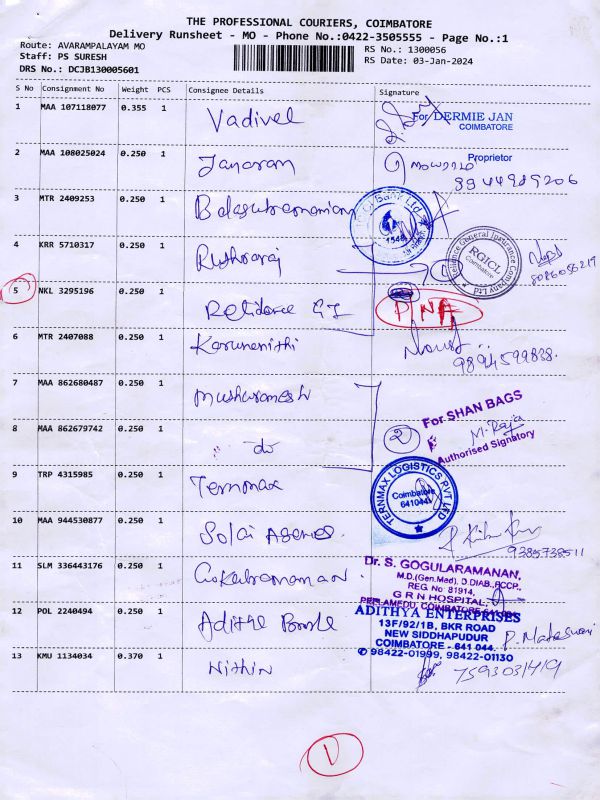 THE PROFESSIONAL COURIERS, COIMBATORE
Delivery Runsheet - MO - Phone No.:0422-3505555 - Page No.:1
Route: AVARAMPALAYAM MO
RS No.: 1300056
Staff: PS SURESH
RS Date: 03-Jan-2024
DRS No.: DCJB130005601
S No Consignment No Weight PCS Consignee Details Signature
1 MAA 107118077 0.355 1 Vadivel
For DERMIE JAN
COIMBATORE
Proprietor
2 MAA 108025024 0.250 1 Janaram
8944989206
3 MTR 2409253 0.250 1 Balasubramaniam
4 KRR 5710317 0.250 1
Reliance General Insurance Company
RGICL
Coimbatore
8086056219
5 NKL 3295196 0.250 1 Reliance GI
PNA
6 MTR 2407088 0.250 1 Karunanithi
9894599838.
7 MAA 862680487 0.250 1 Muthuramesh
For SHAN BAGS
M. Raja
Authorised Signatory
8 MAA 862679742 0.250 1 do
2
9 TRP 4315985 0.250 1 Ternmax
TERNMAX LOGISTICS PVT LTD
Coimbatore
641044
10 MAA 944530877 0.250 1 Solai Agencies.
9385738511
11 SLM 336443176 0.250 1 Gokulramanan.
Dr. S. GOGULARAMANAN,
M.D.(Gen.Med), D.DIAB.,FCCP.,
REG. No: 81914,
G R N HOSPITAL,
PEELAMEDU, COIMBATORE
12 POL 2240494 0.250 1
ADITHYA ENTERPRISES
13F/92/1B, BKR ROAD
NEW SIDDHAPUDUR
COIMBATORE - 641 044.
98422-01999, 98422-01130
13 KMU 1134034 0.370 1 Nithin
7593031419
1